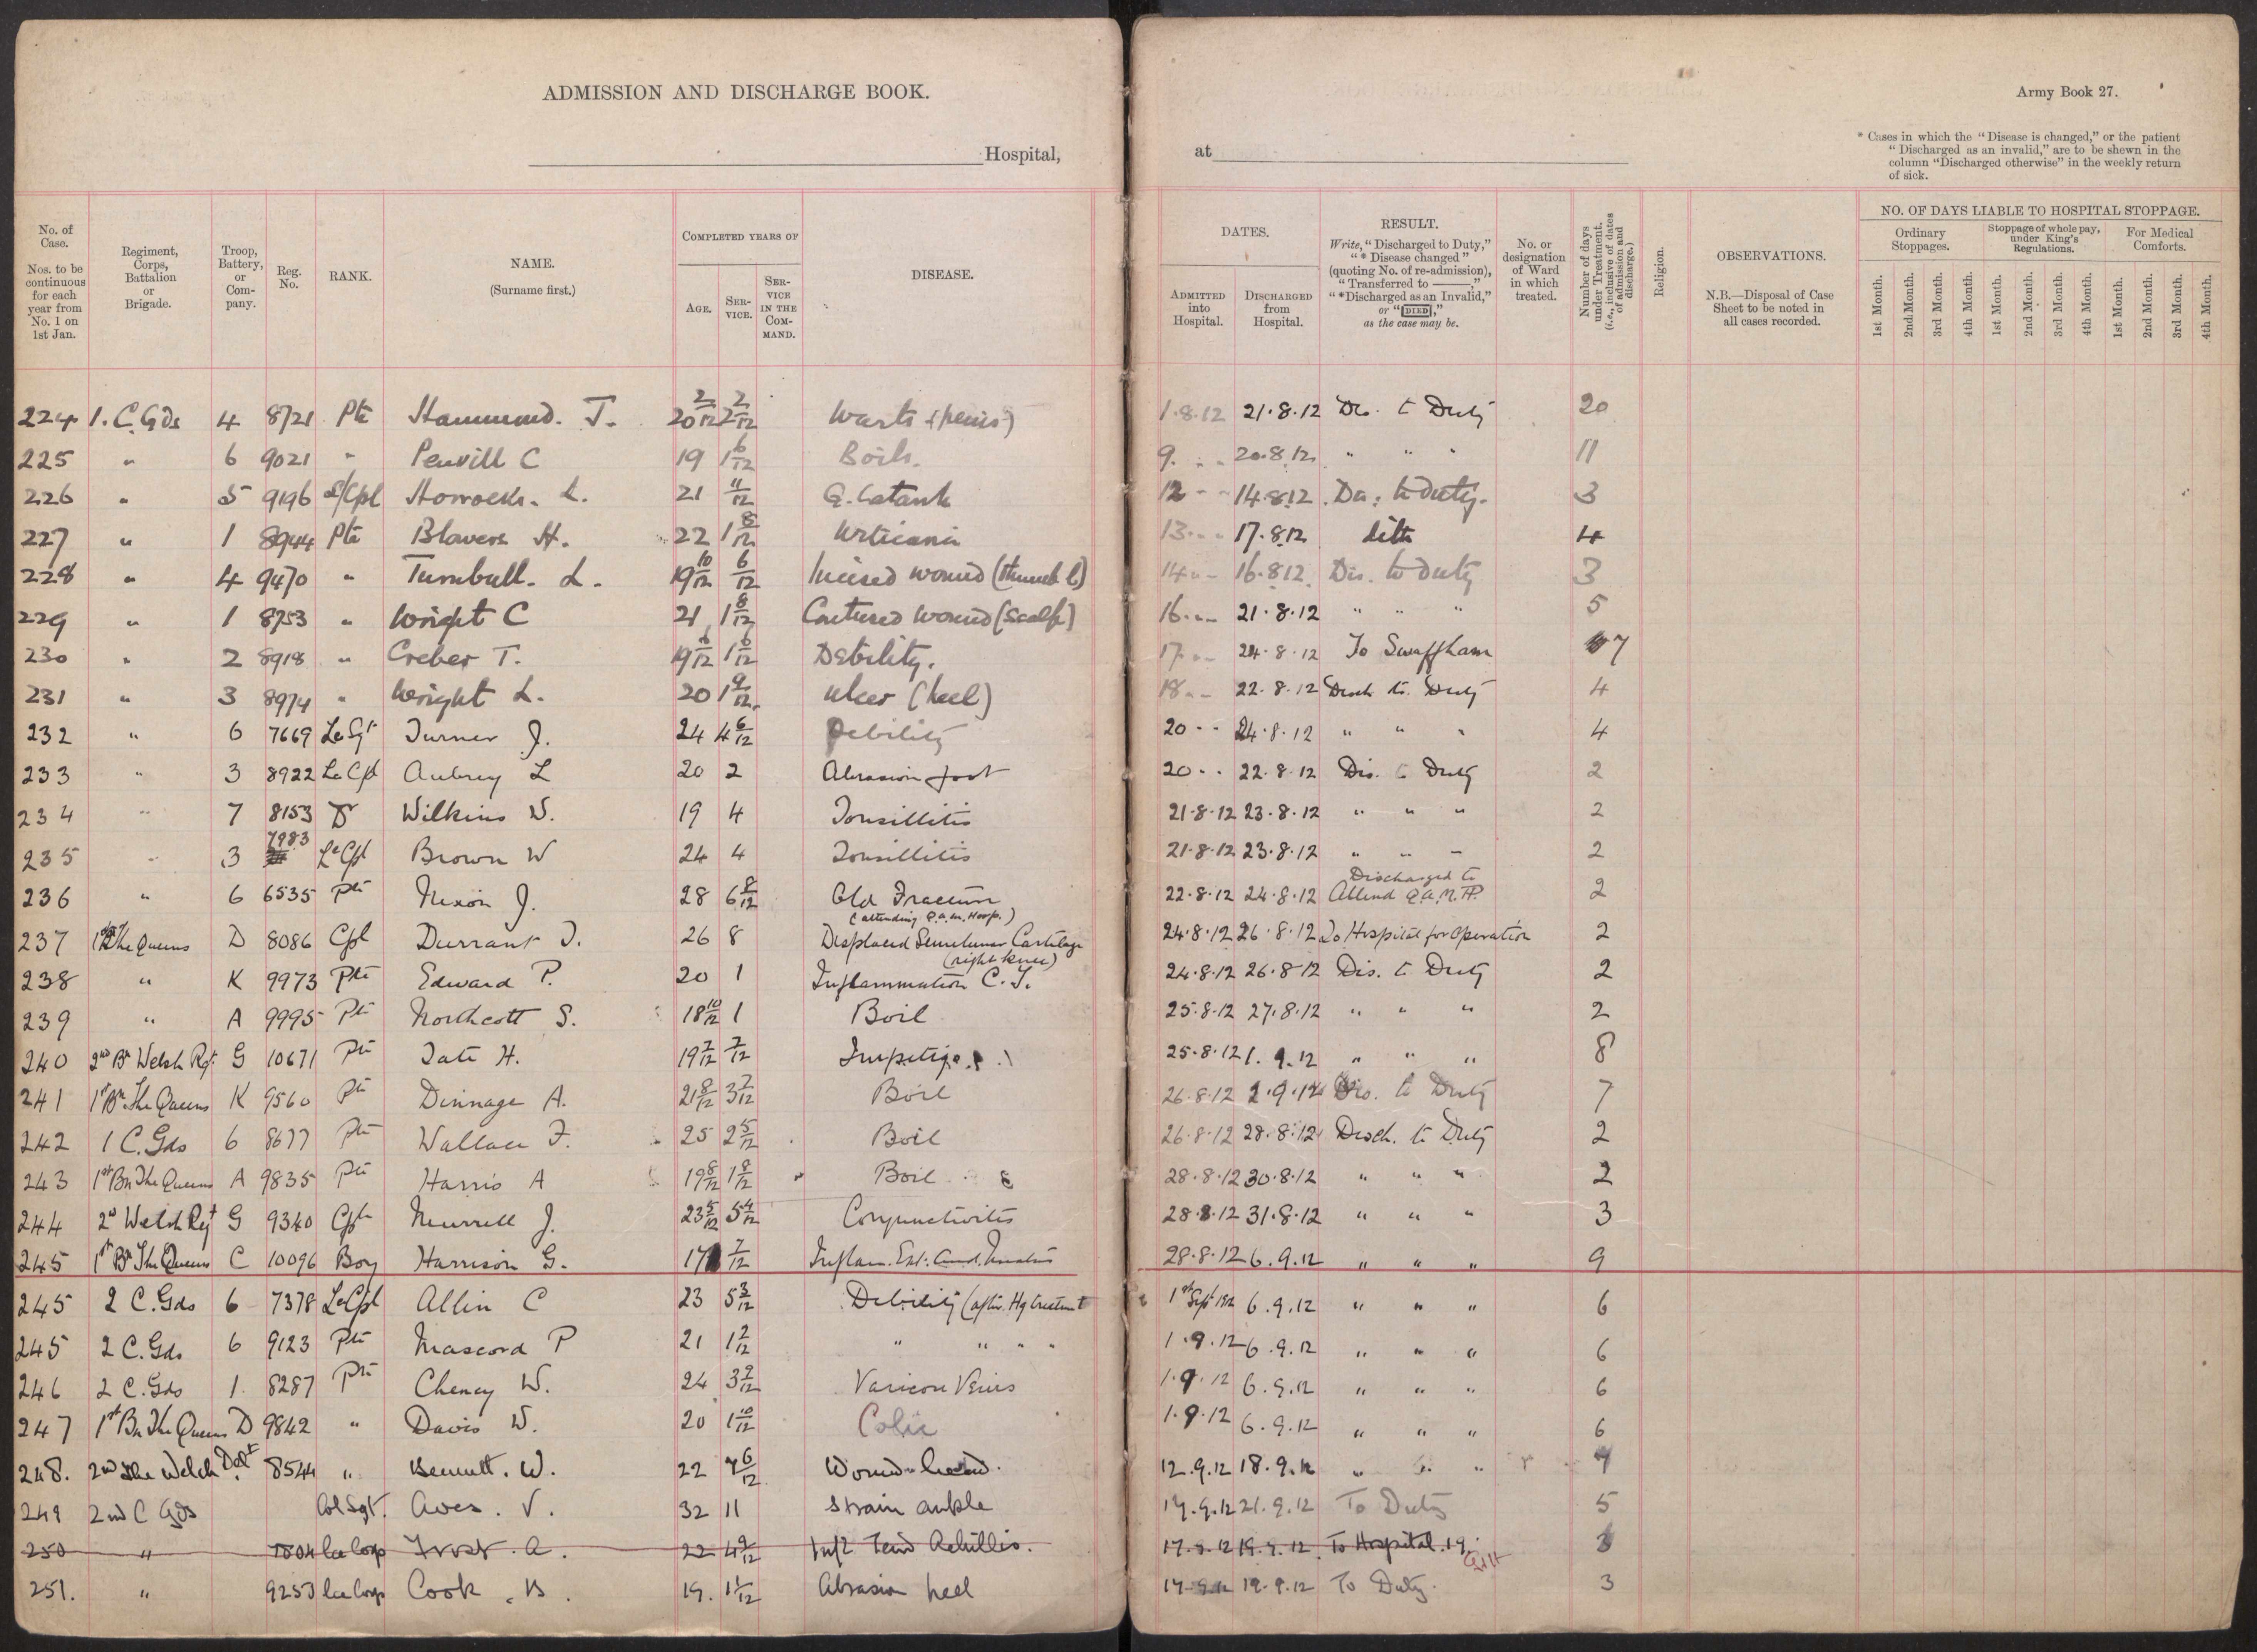 ADMISSION AND DISCHARGE BOOK.
Hospital,
at
Army Book 27.
* Cases in which the "Disease is changed," or the patient
"Discharged as an invalid," are to be shewn in the
column "Discharged otherwise" in the weekly return
of sick.
No. of Case. Nos. to be continuous for each year from No. 1 on 1st Jan.
Regiment, Corps, Battalion or Brigade.
Troop, Battery, or Company.
Reg. No.
RANK.
NAME. (Surname first.)
COMPLETED YEARS OF
AGE.
SERVICE.
SERVICE IN THE COMMAND.
DISEASE.
DATES.
ADMITTED into Hospital.
DISCHARGED from Hospital.
RESULT.
Write, "Discharged to Duty,"
"* Disease changed"
(quoting No. of re-admission),
"Transferred to ———,"
"*Discharged as an Invalid,"
or "DIED,"
as the case may be.
No. or designation of Ward in which treated.
Number of days under Treatment. (i.e., inclusive of dates of admission and discharge.)
Religion.
OBSERVATIONS.
N.B.—Disposal of Case Sheet to be noted in all cases recorded.
NO. OF DAYS LIABLE TO HOSPITAL STOPPAGE.
Ordinary Stoppages.
Stoppage of whole pay, under King's Regulations.
For Medical Comforts.
1st Month. 2nd Month. 3rd Month. 4th Month. 1st Month. 2nd Month. 3rd Month. 4th Month. 1st Month. 2nd Month. 3rd Month. 4th Month.
224 1. C. Gds 4 8721 Pte Hammond. T. 20 2/12 2 2/12 Warts (penis) 1.8.12 21.8.12 Dis. to Duty 20
225 " 6 9021 " Penvill C 19 1 6/12 Boils. 9. " " 20.8.12 " " " 11
226 " 5 9196 L/Cpl Horrocks. L. 21 11/12 G. Catarrh 12 " " 14.8.12 Dis. to duty. 3
227 " 1 8944 Pte Blowers H. 22 1 8/12 Urticaria 13 " " 17.8.12 ditto 4
228 " 4 9470 " Turnbull. L. 19 10/12 6/12 Incised wound (thumb l) 14 " " 16.8.12 Dis. to duty 3
229 " 1 8753 " Wright C 21 1 8/12 Contused wound (scalp) 16 " " 21.8.12 " " " 5
230 " 2 8918 " Creber T. 19 6/12 1 6/12 Debility. 17 " " 24.8.12 To Swaffham 7
231 " 3 8974 " Wright L. 20 1 9/12 Ulcer (heel) 18 " " 22.8.12 Disch to. Duty 4
232 " 6 7669 Le Sgt Turner J. 24 4 6/12 Debility 20 " " 24.8.12 " " " 4
233 " 3 8922 Le Cpl Aubrey L 20 2 Abrasion foot 20 " " 22.8.12 Dis. to Duty 2
234 " 7 8153 Dr Wilkins W. 19 4 Tonsillitis 21.8.12 23.8.12 " " " 2
235 " 3 7983 Le Cpl Brown W 24 4 Tonsillitis 21.8.12 23.8.12 " " " 2
236 " 6 6535 Pte Nixon J. 28 6 8/12 Old Fracture (attending Q.A.M. Hosp.) 22.8.12 24.8.12 Discharged to Attend Q.A.M.H. 2
237 1st The Queens D 8086 Cpl Durrant J. 26 8 Displaced Semilunar Cartilage (right knee) 24.8.12 26.8.12 To Hospital for Operation 2
238 " K 9973 Pte Edward P. 20 1 Inflammation C.T. 24.8.12 26.8.12 Dis. to Duty 2
239 " A 9995 Pte Northcott S. 18 10/12 1 Boil 25.8.12 27.8.12 " " " 2
240 2nd Bn Welsh Rgt. G 10671 Pte Tate H. 19 7/12 7/12 Impetigo 25.8.12 1.9.12 " " " 8
241 1st Bn. The Queens K 9560 Pte Dinnage A. 21 8/12 3 7/12 Boil 26.8.12 2.9.12 Dis. to Duty 7
242 1 C. Gds 6 8677 Pte Wallace F. 25 2 5/12 Boil 26.8.12 28.8.12 Disch. to Duty 2
243 1st Bn The Queens A 9835 Pte Harris A 19 8/12 1 8/12 Boil 28.8.12 30.8.12 " " " 2
244 2d Welsh Regt G 9340 Cpl Murrell J. 23 5/12 5 4/12 Conjunctivitis 28.8.12 31.8.12 " " " 3
245 1st Bn The Queens C 10096 Boy Harrison G. 17 7/12 Inflam. Ext. Aud. Meatus 28.8.12 6.9.12 " " " 9
245 2 C. Gds 6 7378 Le Cpl Allin C 23 5 3/12 Debility (after Hg treatment 1st Sept 1912 6.9.12 " " " 6
245 2 C. Gds 6 9123 Pte Mascord P 21 1 2/12 " " " " 1.9.12 6.9.12 " " " 6
246 2 C. Gds 1. 8287 Pte Cheney W. 24 3 9/12 Varicose Veins 1.9.12 6.9.12 " " " 6
247 1st Bn The Queens D 9842 " Davis W. 20 1 10/12 Colic 1.9.12 6.9.12 " " " 6
248. 2nd The Welch Det 8544 " Bennett. W. 22 4 6/12 Wound head. 12.9.12 18.9.12 " " " 7
249 2nd C Gds Col Sgt. Aves. V. 32 11 Strain ankle 17.9.12 21.9.12 To Duty 5
250 " 7804 Lce Corp Frost. A. 22 4 9/12 Infl Tend Achillis. 17.9.12 19.9.12 To Hospital. 19. 3
251. " 9253 Lce Corp Cook. B. 19. 1 1/12 Abrasion heel 17.9.12 19.9.12 To Duty. 3